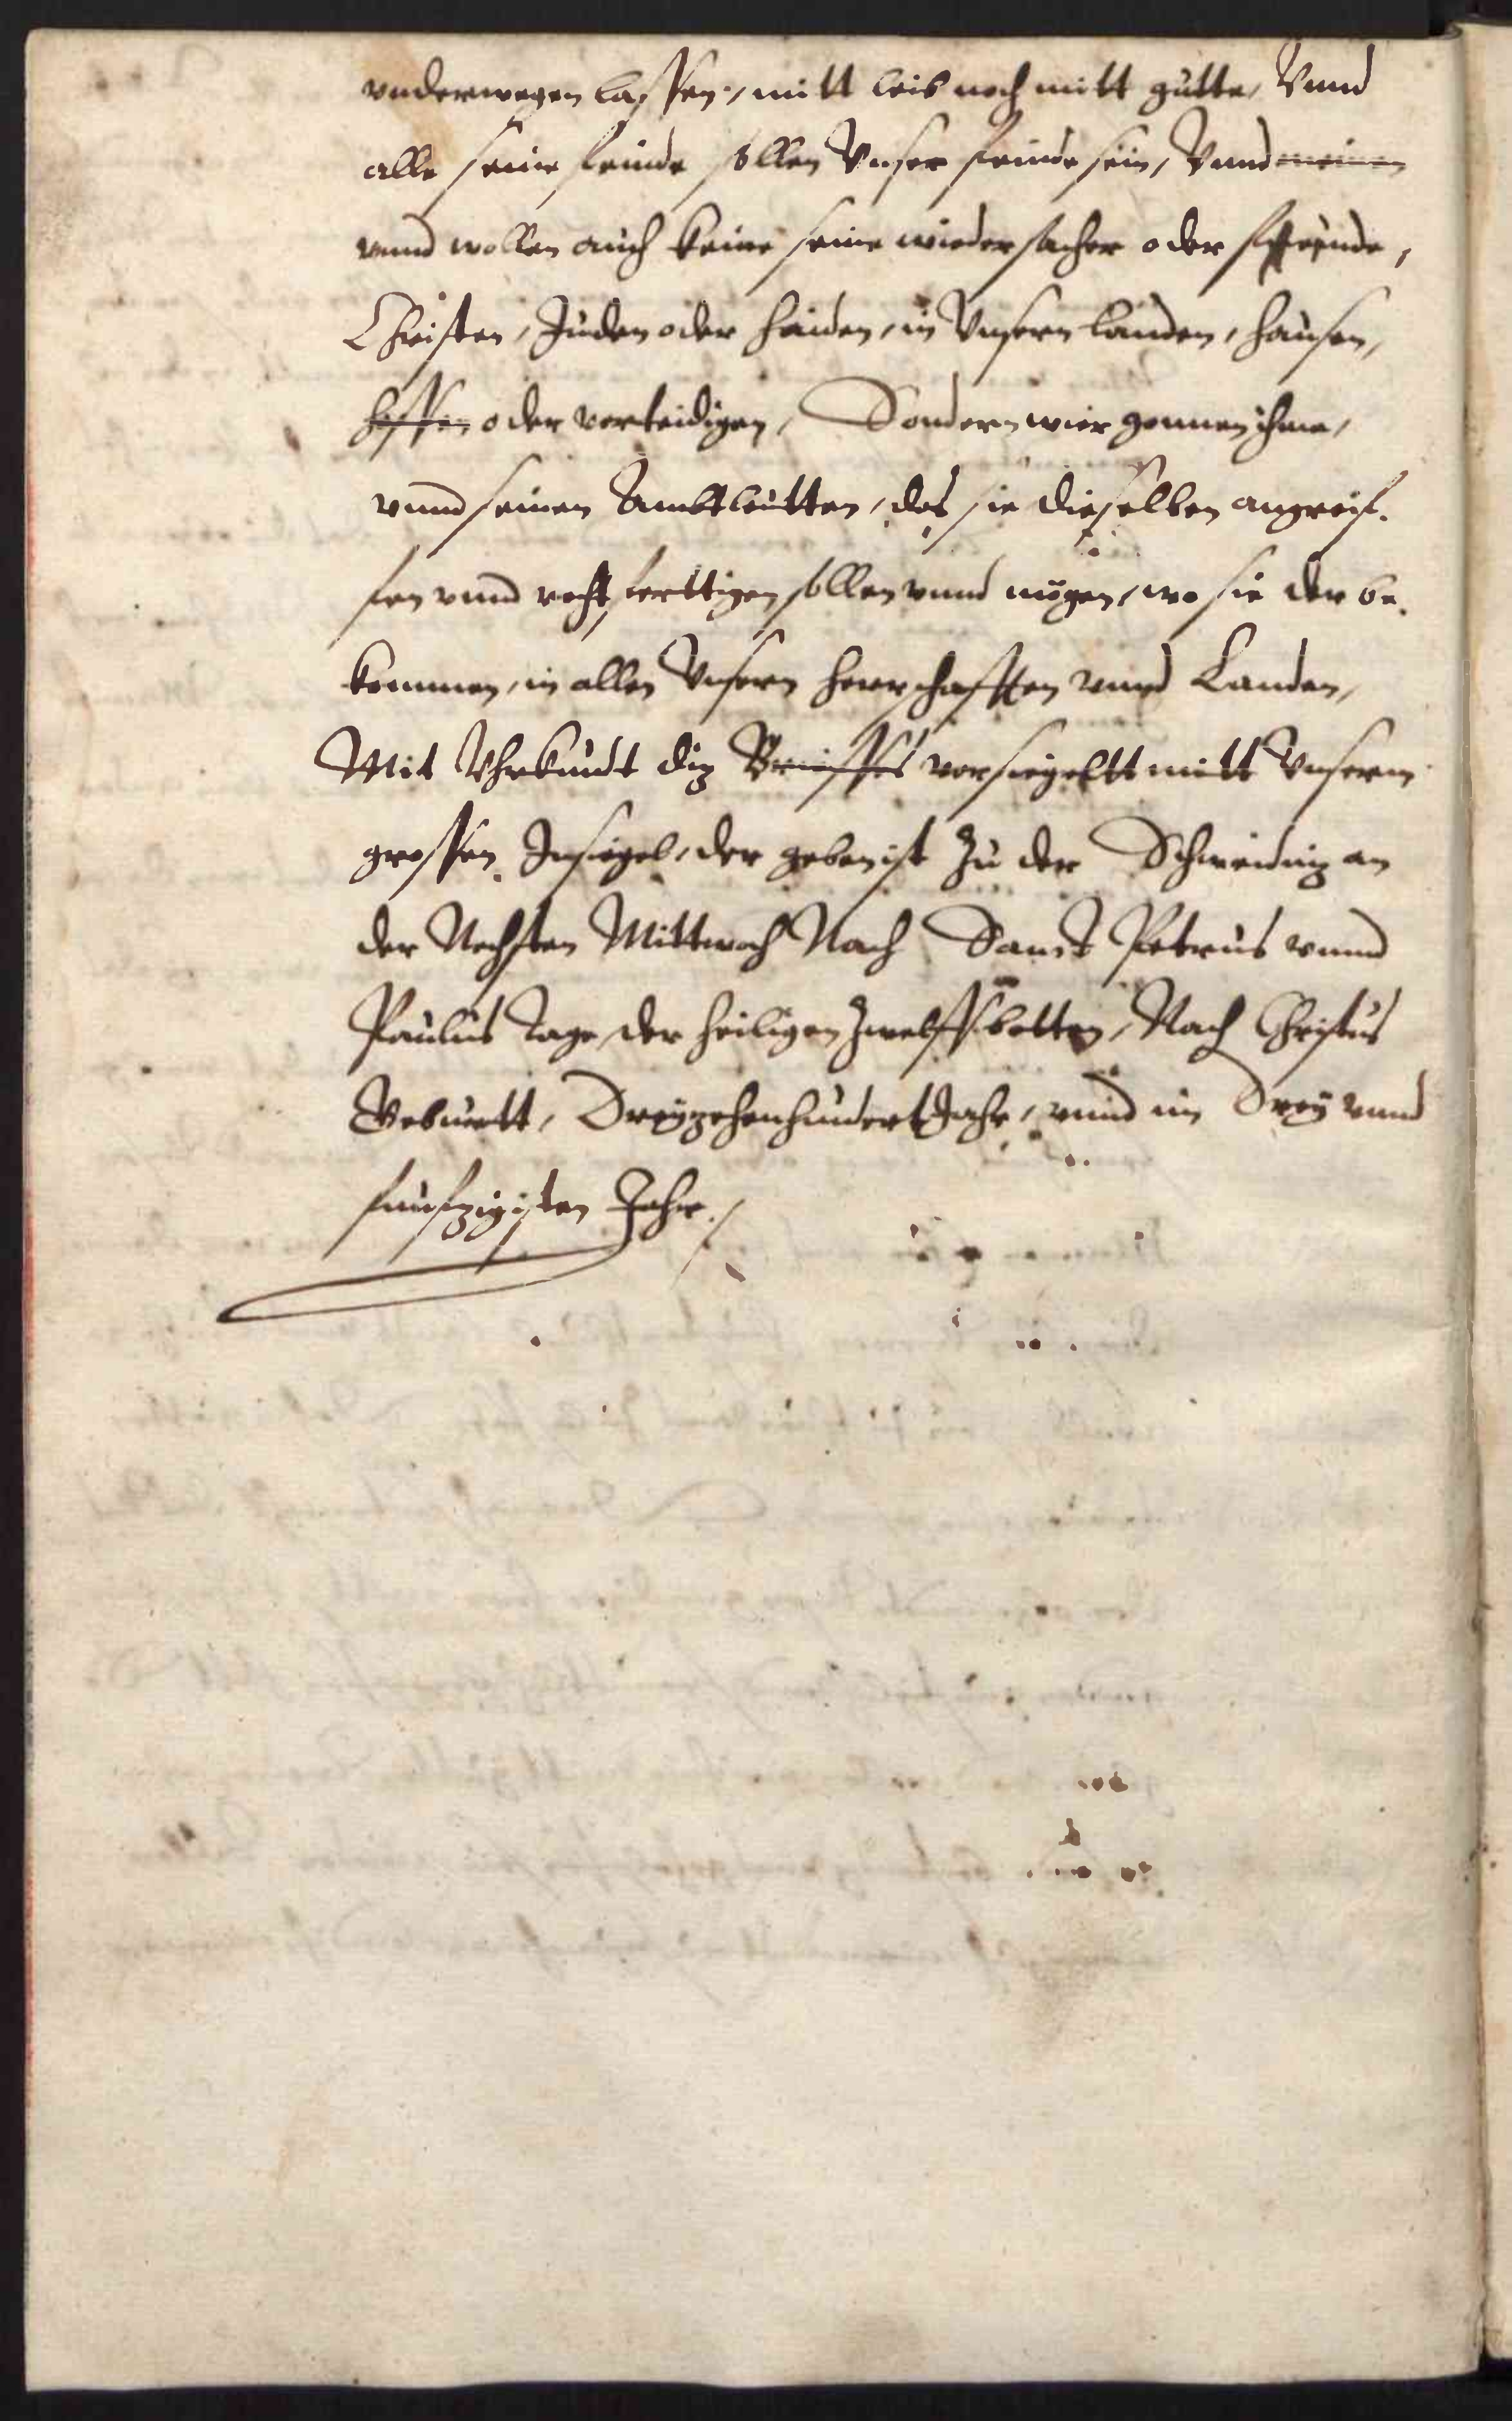 vnderwegen lassen, mitt leib noch mitt gutte, Vnnd
alle seine feinde sollen Vnser feinde sein, Vnnd meinen
vnnd wollen auch keine seine wiedersacher oder feinde,
Christen, Juden oder heiden, in Vnsern landen, hausen,
hoffen oder verteidigen, Sondern wier gonnen ihme,
vnnd seinen Ambtleutten, das sie dieselben angreif-
fen vnnd rechtferttigen sollen vnnd mügen, wo sie der be-
kommen, in allen Vnsern herrschafften vnnd Landen,
Mit Vhrkundt diz Brieffes versiegeltt mitt Vnserm
grossen Insiegel, der geben ist Zu der Schweidniz an
der Nechsten Mittwoch Nach Sanct Petrus vnnd
Paulus tage der heiligen Zwelffbotten, Nach Christus
Geburtt, Dreyzehenhundert Jahr, vnnd im Drey vnnd
funfzigisten Jahr.